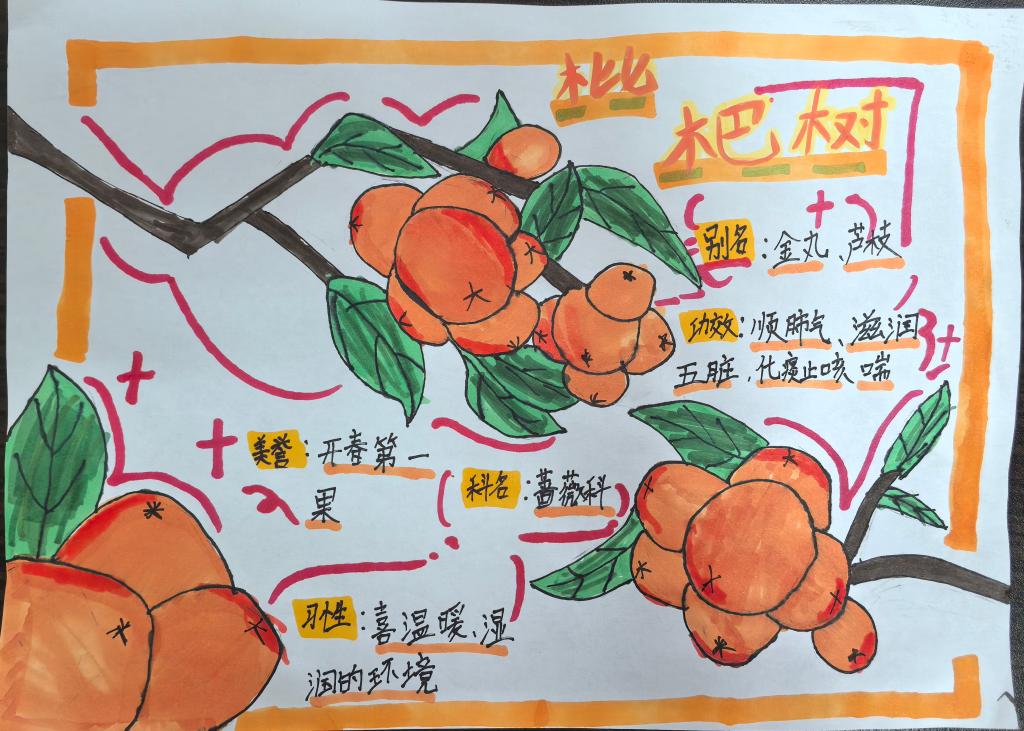 枇
杷树
别名:金丸、芦枝
功效:顺肺气、滋润
五脏、化痰止咳喘
美誉:开春第一
果
科名:蔷薇科
习性:喜温暖、湿
润的环境